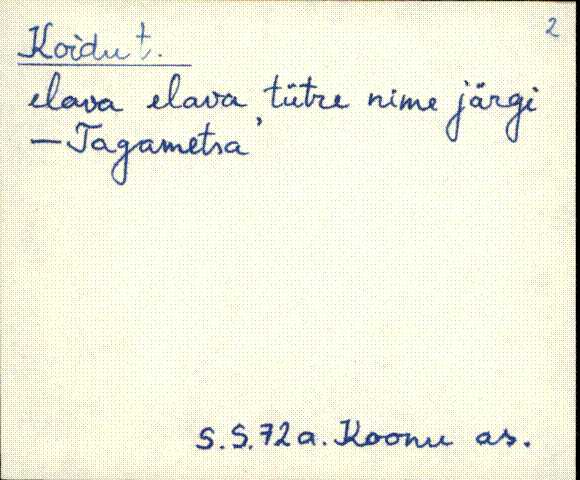 2
Koidu t.
elava elava, tütre nime järgi
— Tagametsa
S.S. 72 a. Koonu as.